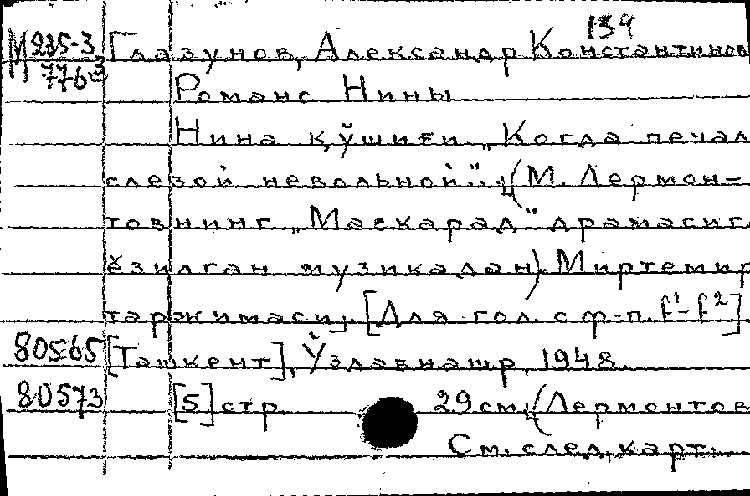 134
М 235-3 Глазунов, Александр Константинов
776-3
Романс Нины
Нина қўшиғи „Когда печал
слезой невольной..." (М. Лермон-
товнинг „Маскарад" драмасига
ёзилган музикадан). Миртемир
таржимаси, [Для гол. с ф-п. f¹-f²]
80565 [Ташкент], Ўздавнашр, 1948.
80573 [5] стр. 29 см. (Лермонтов
См. след. карт.